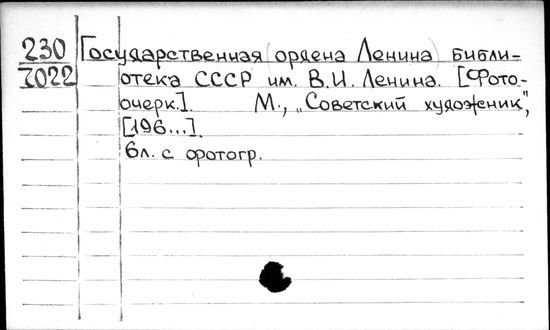 230 Государственная (ордена Ленина) библи-
7022 отека СССР им. В.И. Ленина. [Фото-
очерк.]. М., „Советский художник",
[196...].
6л. с фотогр.